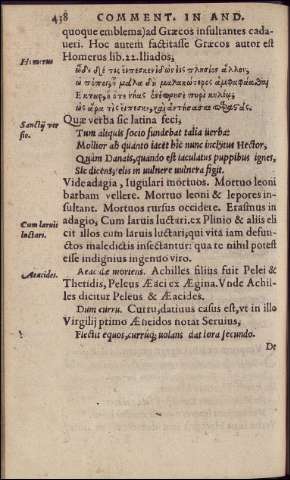 438 COMMENT. IN AND.
quoque emblema) ad Græcos insultantes cadaueri.
Hoc autem factitasse Græcos autor est
Homerus
Homerus lib. 22. Iliados,
ὧδε δέ τις εἴπεσκεν ἰδὼν εἰς πλησίον ἄλλον,
ὢ πόποι, ἦ μάλα δὴ μαλακώτερος ἀμφαφάασθαι
Ἕκτωρ, ἢ ὅτε νῆας ἐνέπρησε πυρὶ κηλέῳ.
ὣς ἄρα τις εἴπεσκε, καὶ
Sanctij versio.
Quæ verba sic latina feci,
Tum aliquis socio fundebat talia verba:
Mollior ah quanto iacet hic nunc inclytus Hector,
Quàm Danais, quando est iaculatus puppibus ignes,
Sic dicens, eius in vulnere vulnera figit.
Vide adagia, Iugulari mortuos. Mortuo leoni
barbam vellere. Mortuo leoni & lepores insultant.
Mortuos rursus occidere. Erasmus in
Cum laruis luctari.
adagio, Cum laruis luctari. ex Plinio & aliis elicit
illos cum laruis luctari, qui vita iam defunctos
maledictis insectantur: qua re nihil potest
esse indignius ingenuo viro.
Aeacides.
Aeacidæ morienς. Achilles filius fuit Pelei &
Thetidis, Peleus Æaci ex Ægina. Vnde Achilles
dicitur Peleus & Æacides.
Dum curru. Curru, datiuus casus est, vt in illo
Virgilij primo Æneidos notat Seruius,
Flectit equos, curruq; volans dat lora secundo.
De